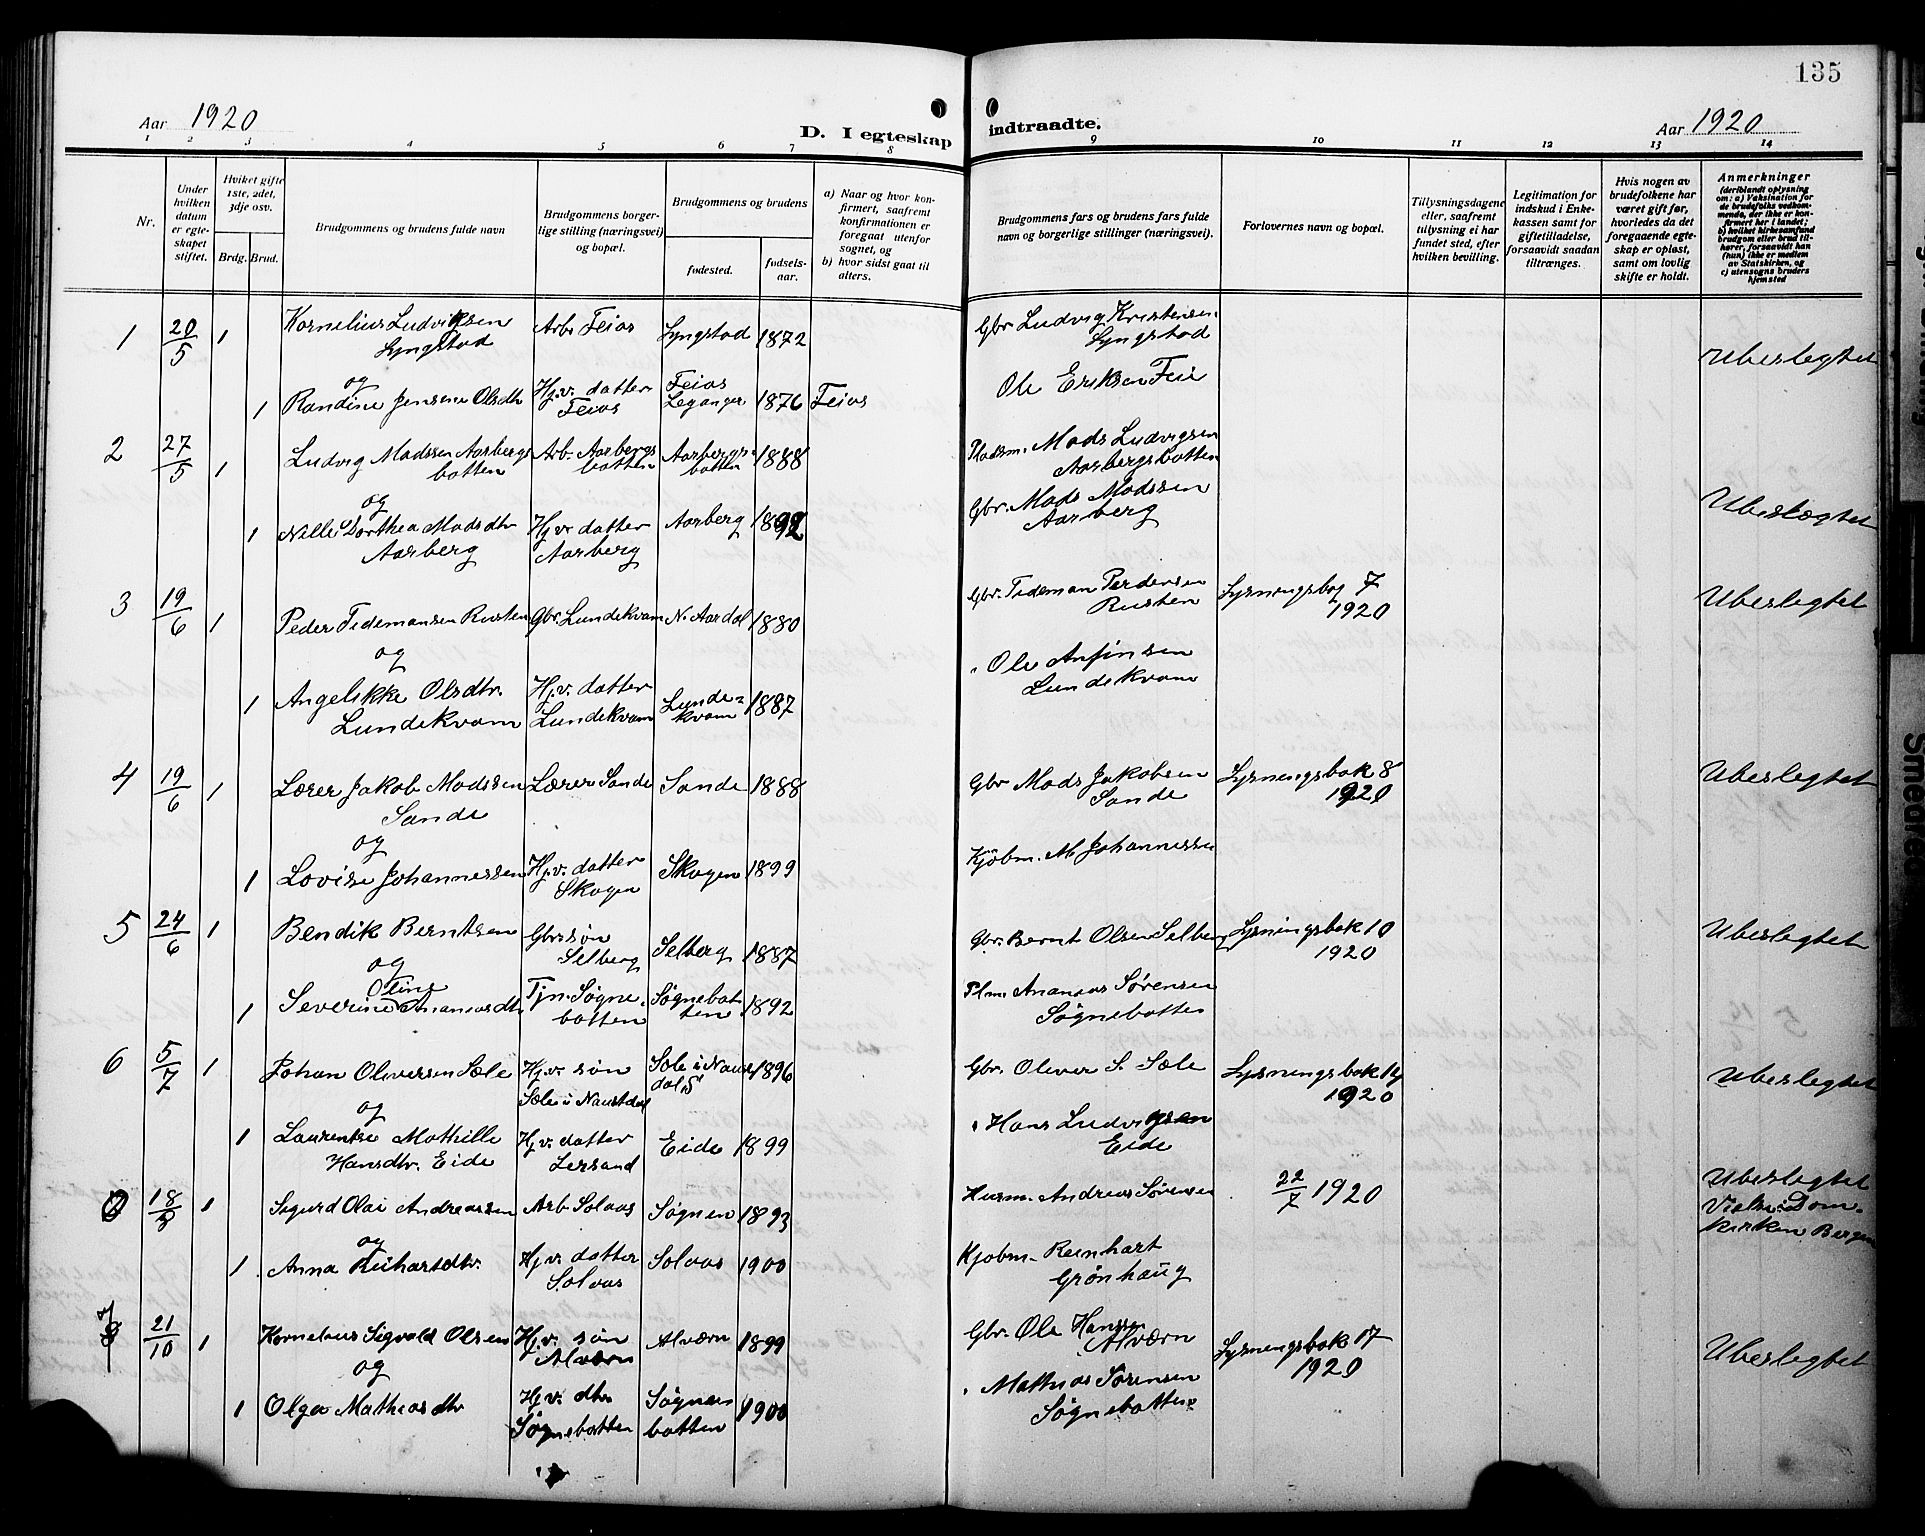 135
Aar 1920
D. I egteskap
indtraadte.
Aar 1920
1 2 3 4 5 6 7 8 9 10 11 12 13 14
Nr.
Under hvilken datum er egteskapet stiftet.
Hvilket gifte 1ste, 2det, 3dje osv.
Brdg. Brud.
Brudgommens og brudens fulde navn
Brudgommens borgerlige stilling (næringsvei) og bopæl.
Brudgommens og brudens
fødested.
fødselsaar.
a) Naar og hvor konfirmert, saafremt konfirmationen er foregaat utenfor sognet, og
b) hvor sidst gaat til alters.
Brudgommens fars og brudens fars fulde navn og borgerlige stillinger (næringsvei).
Forlovernes navn og bopæl.
Tillysningsdagene eller, saafremt tillysning ei har fundet sted, efter hvilken bevilling.
Legitimation for indskud i Enkekassen samt for giftetilladelse, forsaavidt saadan tiltrænges.
Hvis nogen av brudefolkene har været gift før, hvorledes da det foregaaende egteskap er opløst, samt om lovlig skifte er holdt.
Anmerkninger
(deriblandt oplysning om: a) Vaksination for de brudefolks vedkommende, der ikke er konfirmert her i landet; b) hvilket kirkesamfund brudgom eller brud tilhører, forsaavidt han (hun) ikke er medlem av Statskirken, og c) utensogns bruders hjemsted
1 20/5 1 Kornelius Ludvigsen Lyngstad Arb. Feios Lyngstad 1872 Gbr. Ludvig Kristensen Lyngstad Ubeslegtet
og
1 Randine Jensine Olsdtr Hj.v. datter Feios Feios Leganger 1876 Feios Ole Eriksen Feie
2 27/5 1 Ludvig Madssen Aarbergsbotten Arb. Aarbergsbotten Aarbergsbotten 1888 Pladsm. Mads Ludvigsen Aarbergsbotten
og
1 Nille Dorthea Madsdtr Aarberg Hj.v. datter Aarberg Aarberg 1892 Gbr. Mads Madssen Aarberg Ubeslægtet
3 19/6 1 Peder Tidemansen Rusten Gbr. Lundekvam N. Aardal 1880 Gbr. Tideman Perdersen Rusten Lysningsbog 7 1920 Ubeslegtet
og
1 Angelikke Olsdtr. Lundekvam Hj.v. datter Lundekvam Lundekvam 1887 " Ole Anfinsen Lundekvam
4 19/6 1 Lærer Jakob Madssen Sande Lærer Sande Sande 1888 Gbr Mads Jakobsen Sande Lysningsbok 8 1920 Ubeslegtet
og
1 Lovise Johannessen Hj.v. datter Skogen Skogen 1899 Kjøbm. M. Johannessen
5 24/6 1 Bendik Berntsen Gbrsøn Selberg Selberg 1887 Gbr. Bernt Olsen Selberg Lysningsbok 10 1920 Ubeslegtet
og
1 Severine Oline Ananiasdtr Tjn. Søgnebotten Søgnebotten 1892 Plm. Ananias Sørensen Søgnebotten
6 5/7 1 Johan Oliversen Sæle Hj.v. søn Sæle i Naustdal Sæle i Naustdal 1896 Gbr. Oliver S. Sæle Lysningsbok 14 1920 Ubeslegtet
og
1 Laurentse Mathille Hansdtr. Eide Hj.v. datter Lersand Eide 1899 " Hans Ludvigsen Eide
0 18/8 1 Sigurd Olai Andreassen Arb Solaas Søgnen 1893 Husm. Andreas Sørensen 22/7 1920 Ubeslegtet Viet i Domkirken Bergen
og
1 Anna Reihartsdtr. Hj.v. datter Solaas Solaas 1900 Kjøbm. Reinhart Grønhaug
7 21/10 1 Kornelius Sigvald Olsen Hj.v. søn Alværn Alværn 1899 Gbr. Ole Hanssen Alværn Lysningsbok 17 1920 Ubeslegtet
og
1 Olga Mathiasdtr Hj.v. dtr. Søgnebotten Søgnesbotten 1900 " Mathias Sørensen Søgnebotten